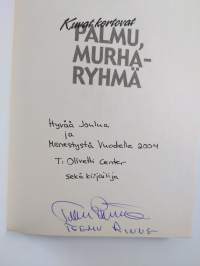 Kuvat kertovat
PALMU,
MURHA-
RYHMÄ
Hyvää Joulua
ja
Menestystä Vuodelle 2004
T: Olivetti Center
sekä kirjailija
TEEMU